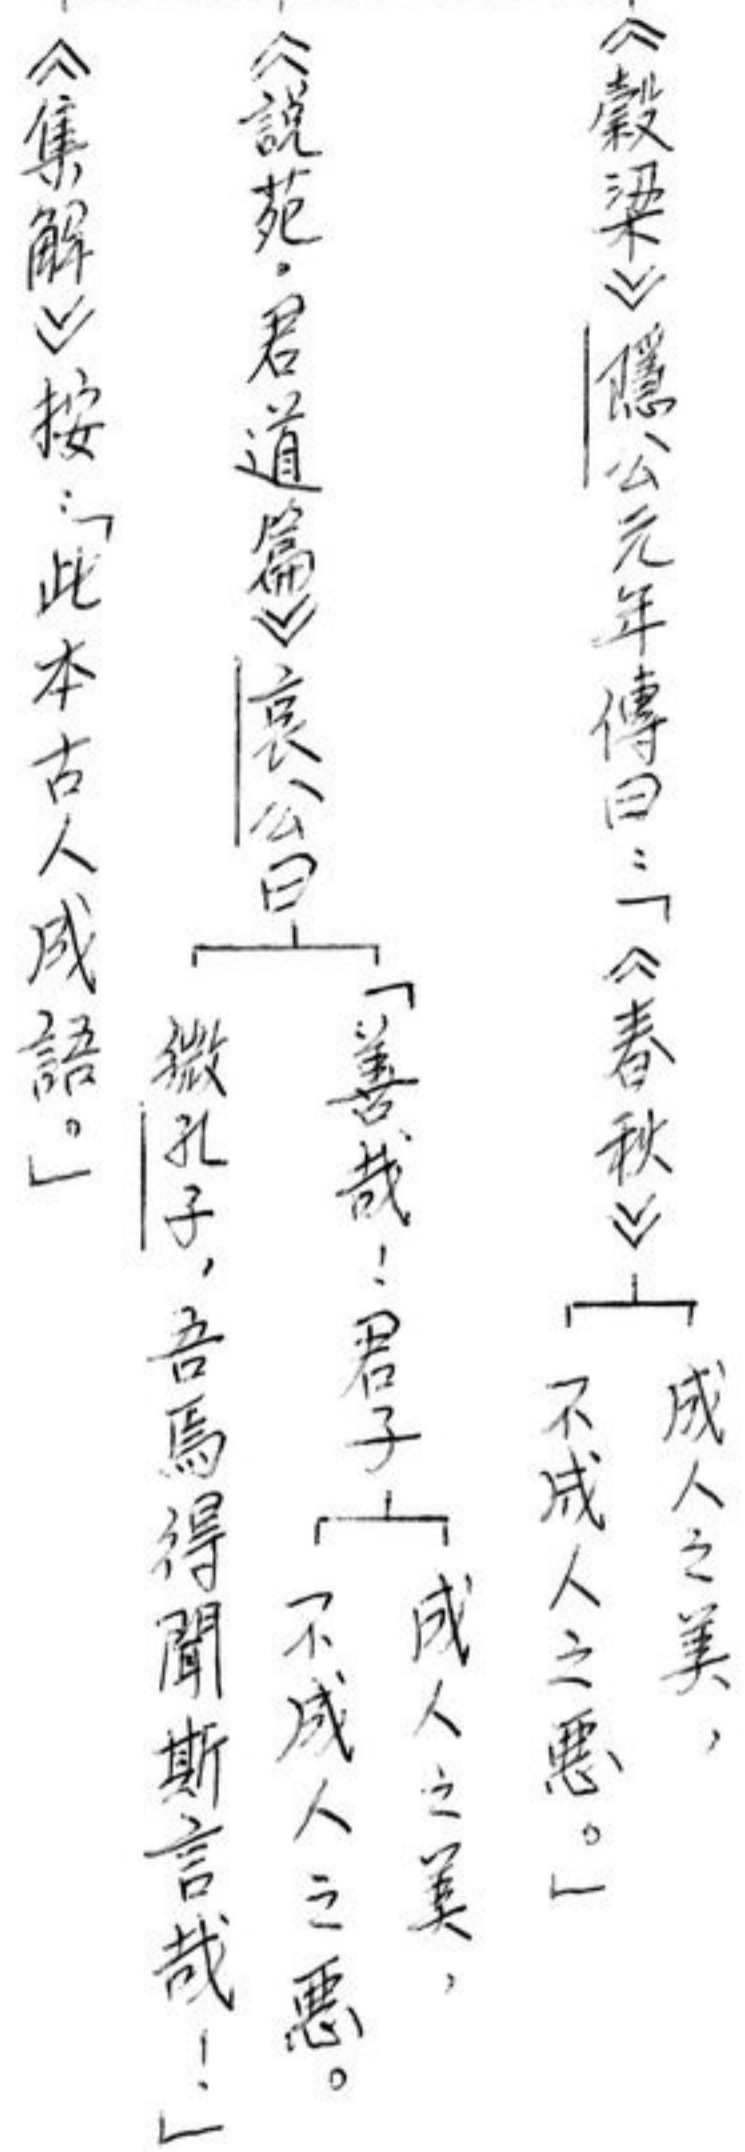 《穀梁》隱公元年傳曰：「《春秋》
成人之美，
不成人之惡。」
《說苑．君道篇》哀公曰
「善哉！君子
成人之美，
不成人之惡。
微孔子，吾焉得聞斯言哉！」
《集解》按：「此本古人成語。」